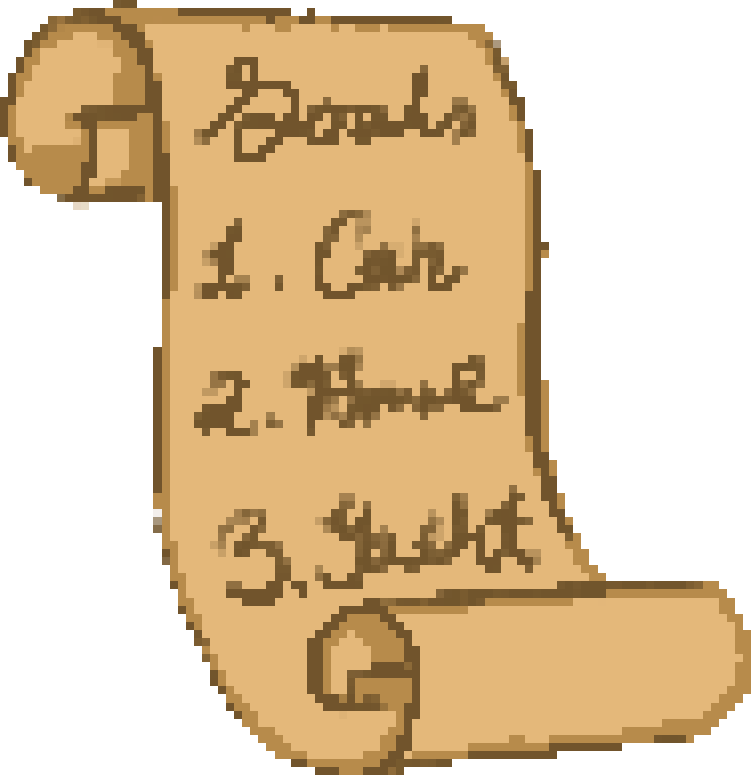 Goals
1. Car
2. House
3. Yacht